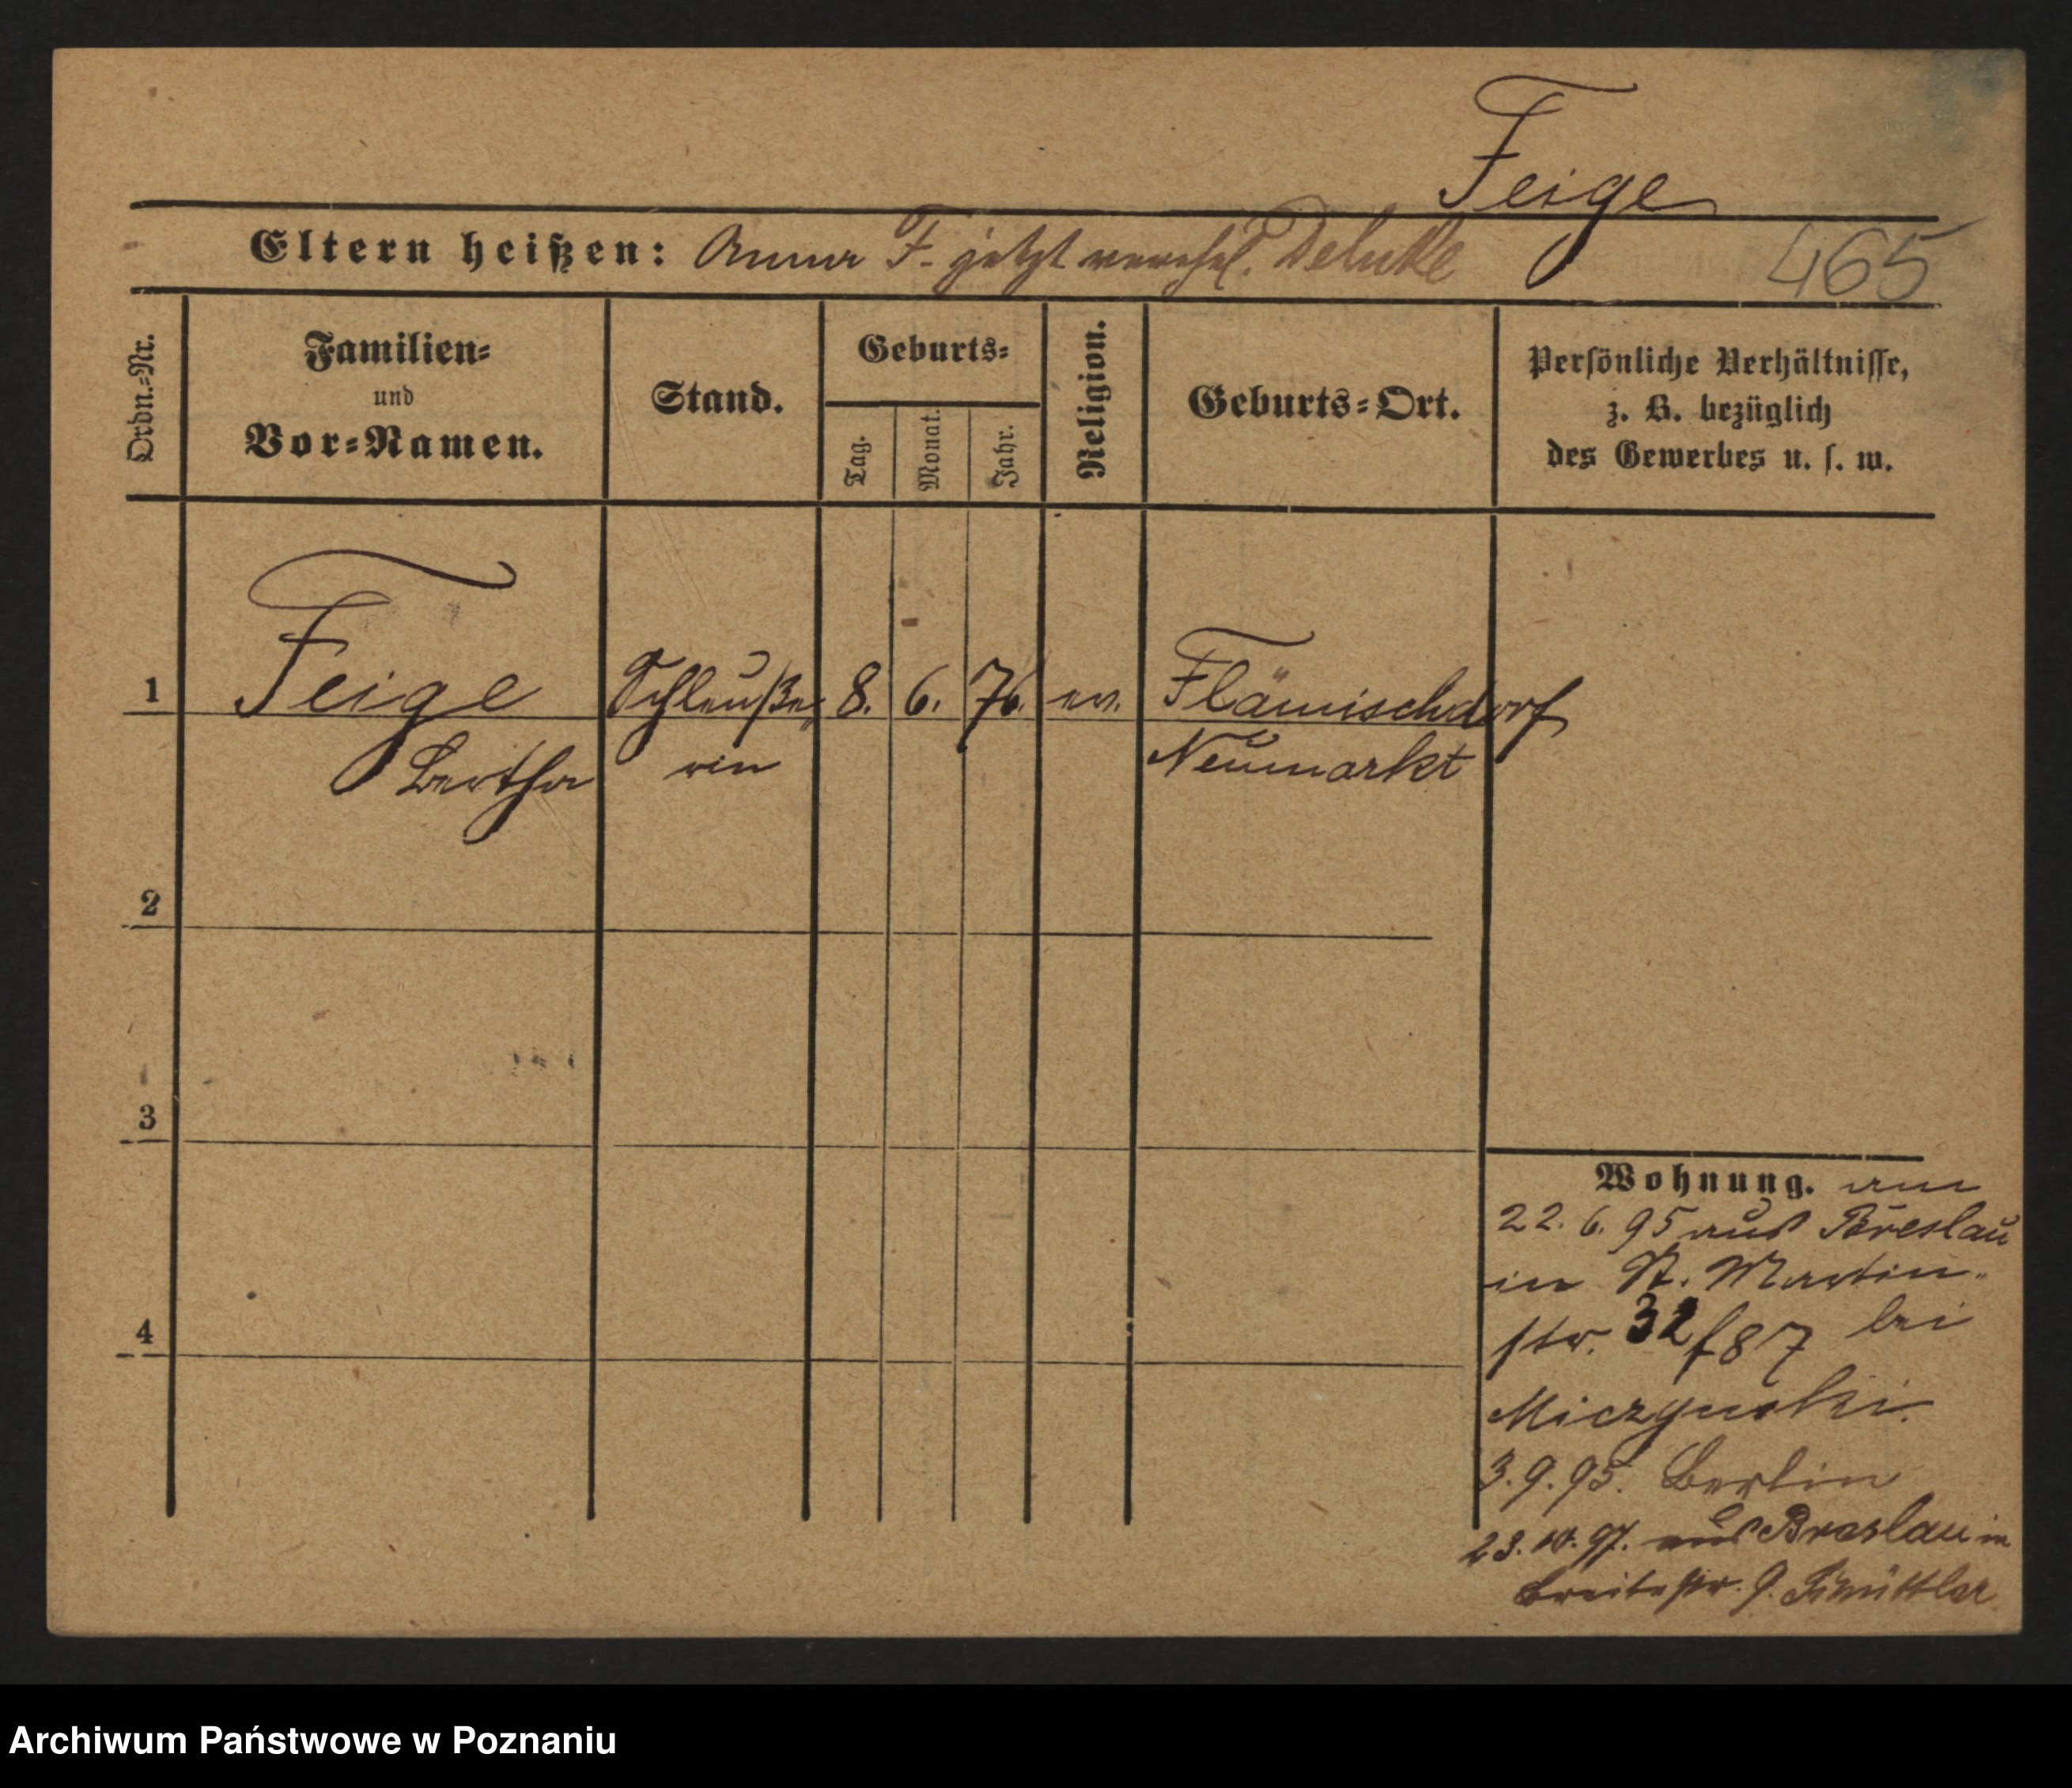 Feige
Eltern heißen: Anna F. jetzt verehel.
465
Ordn.-Nr.
Familien- und Vor-Namen.
Stand.
Geburts-
Tag.
Monat.
Jahr.
Religion.
Geburts-Ort.
Persönliche Verhältnisse,
z. B. bezüglich
des Gewerbes u. s. w.
1 Feige Schleuße- 8. 6. 76. ev. Flämischdorf
Bertha rin Neumarkt
2
3
4
Wohnung. am
22. 6. 95 aus Breslau
in St. Martin-
str. 32 f87 bei
Miczynski.
3. 9. 95. Berlin
23. 10. 97. aus Breslau in
Breitestr. 9.
Archiwum Państwowe w Poznaniu